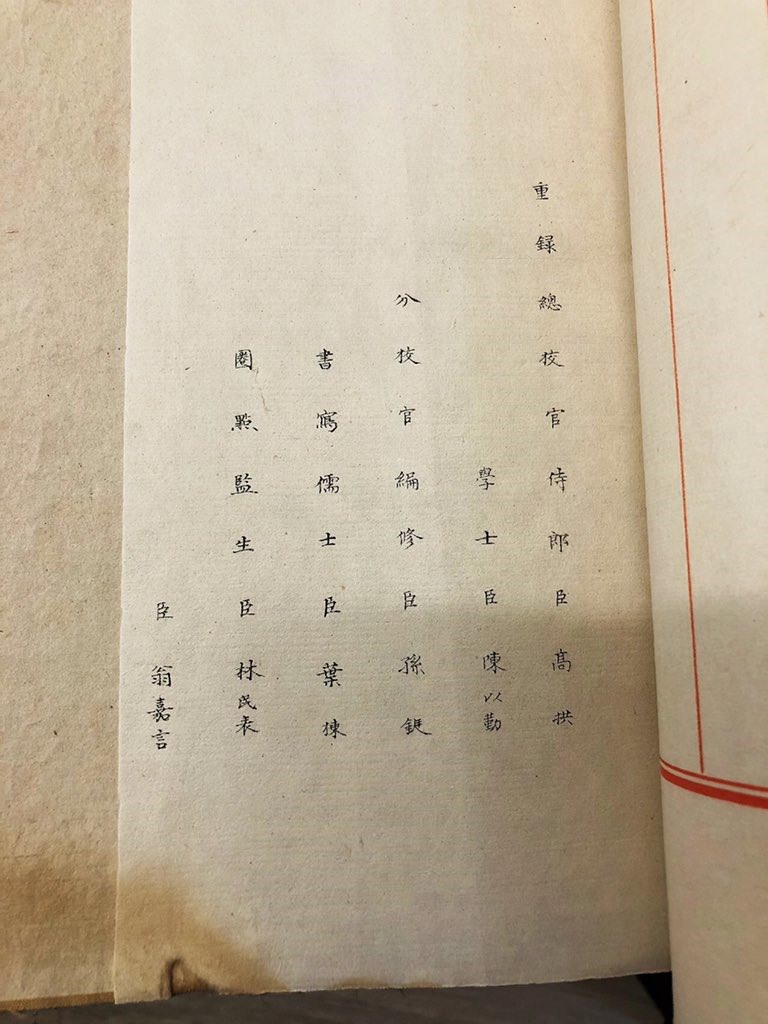 重錄總校官侍郎臣高拱
學士臣陳以勤
分校官編修臣孫鋌
書寫儒士臣葉棟
圈點監生臣林民表
臣翁嘉言